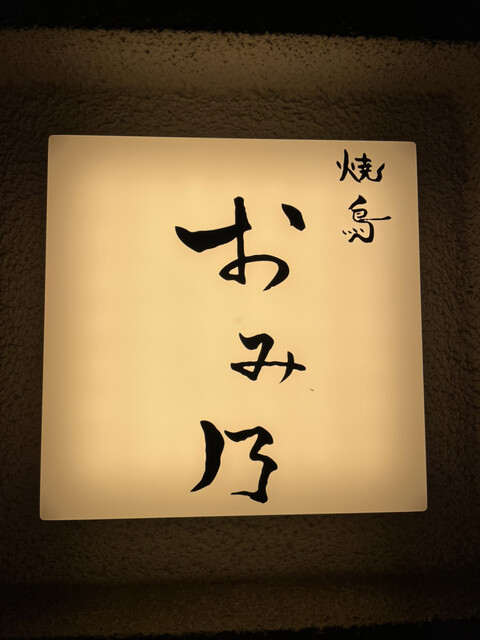 焼鳥
おみ乃